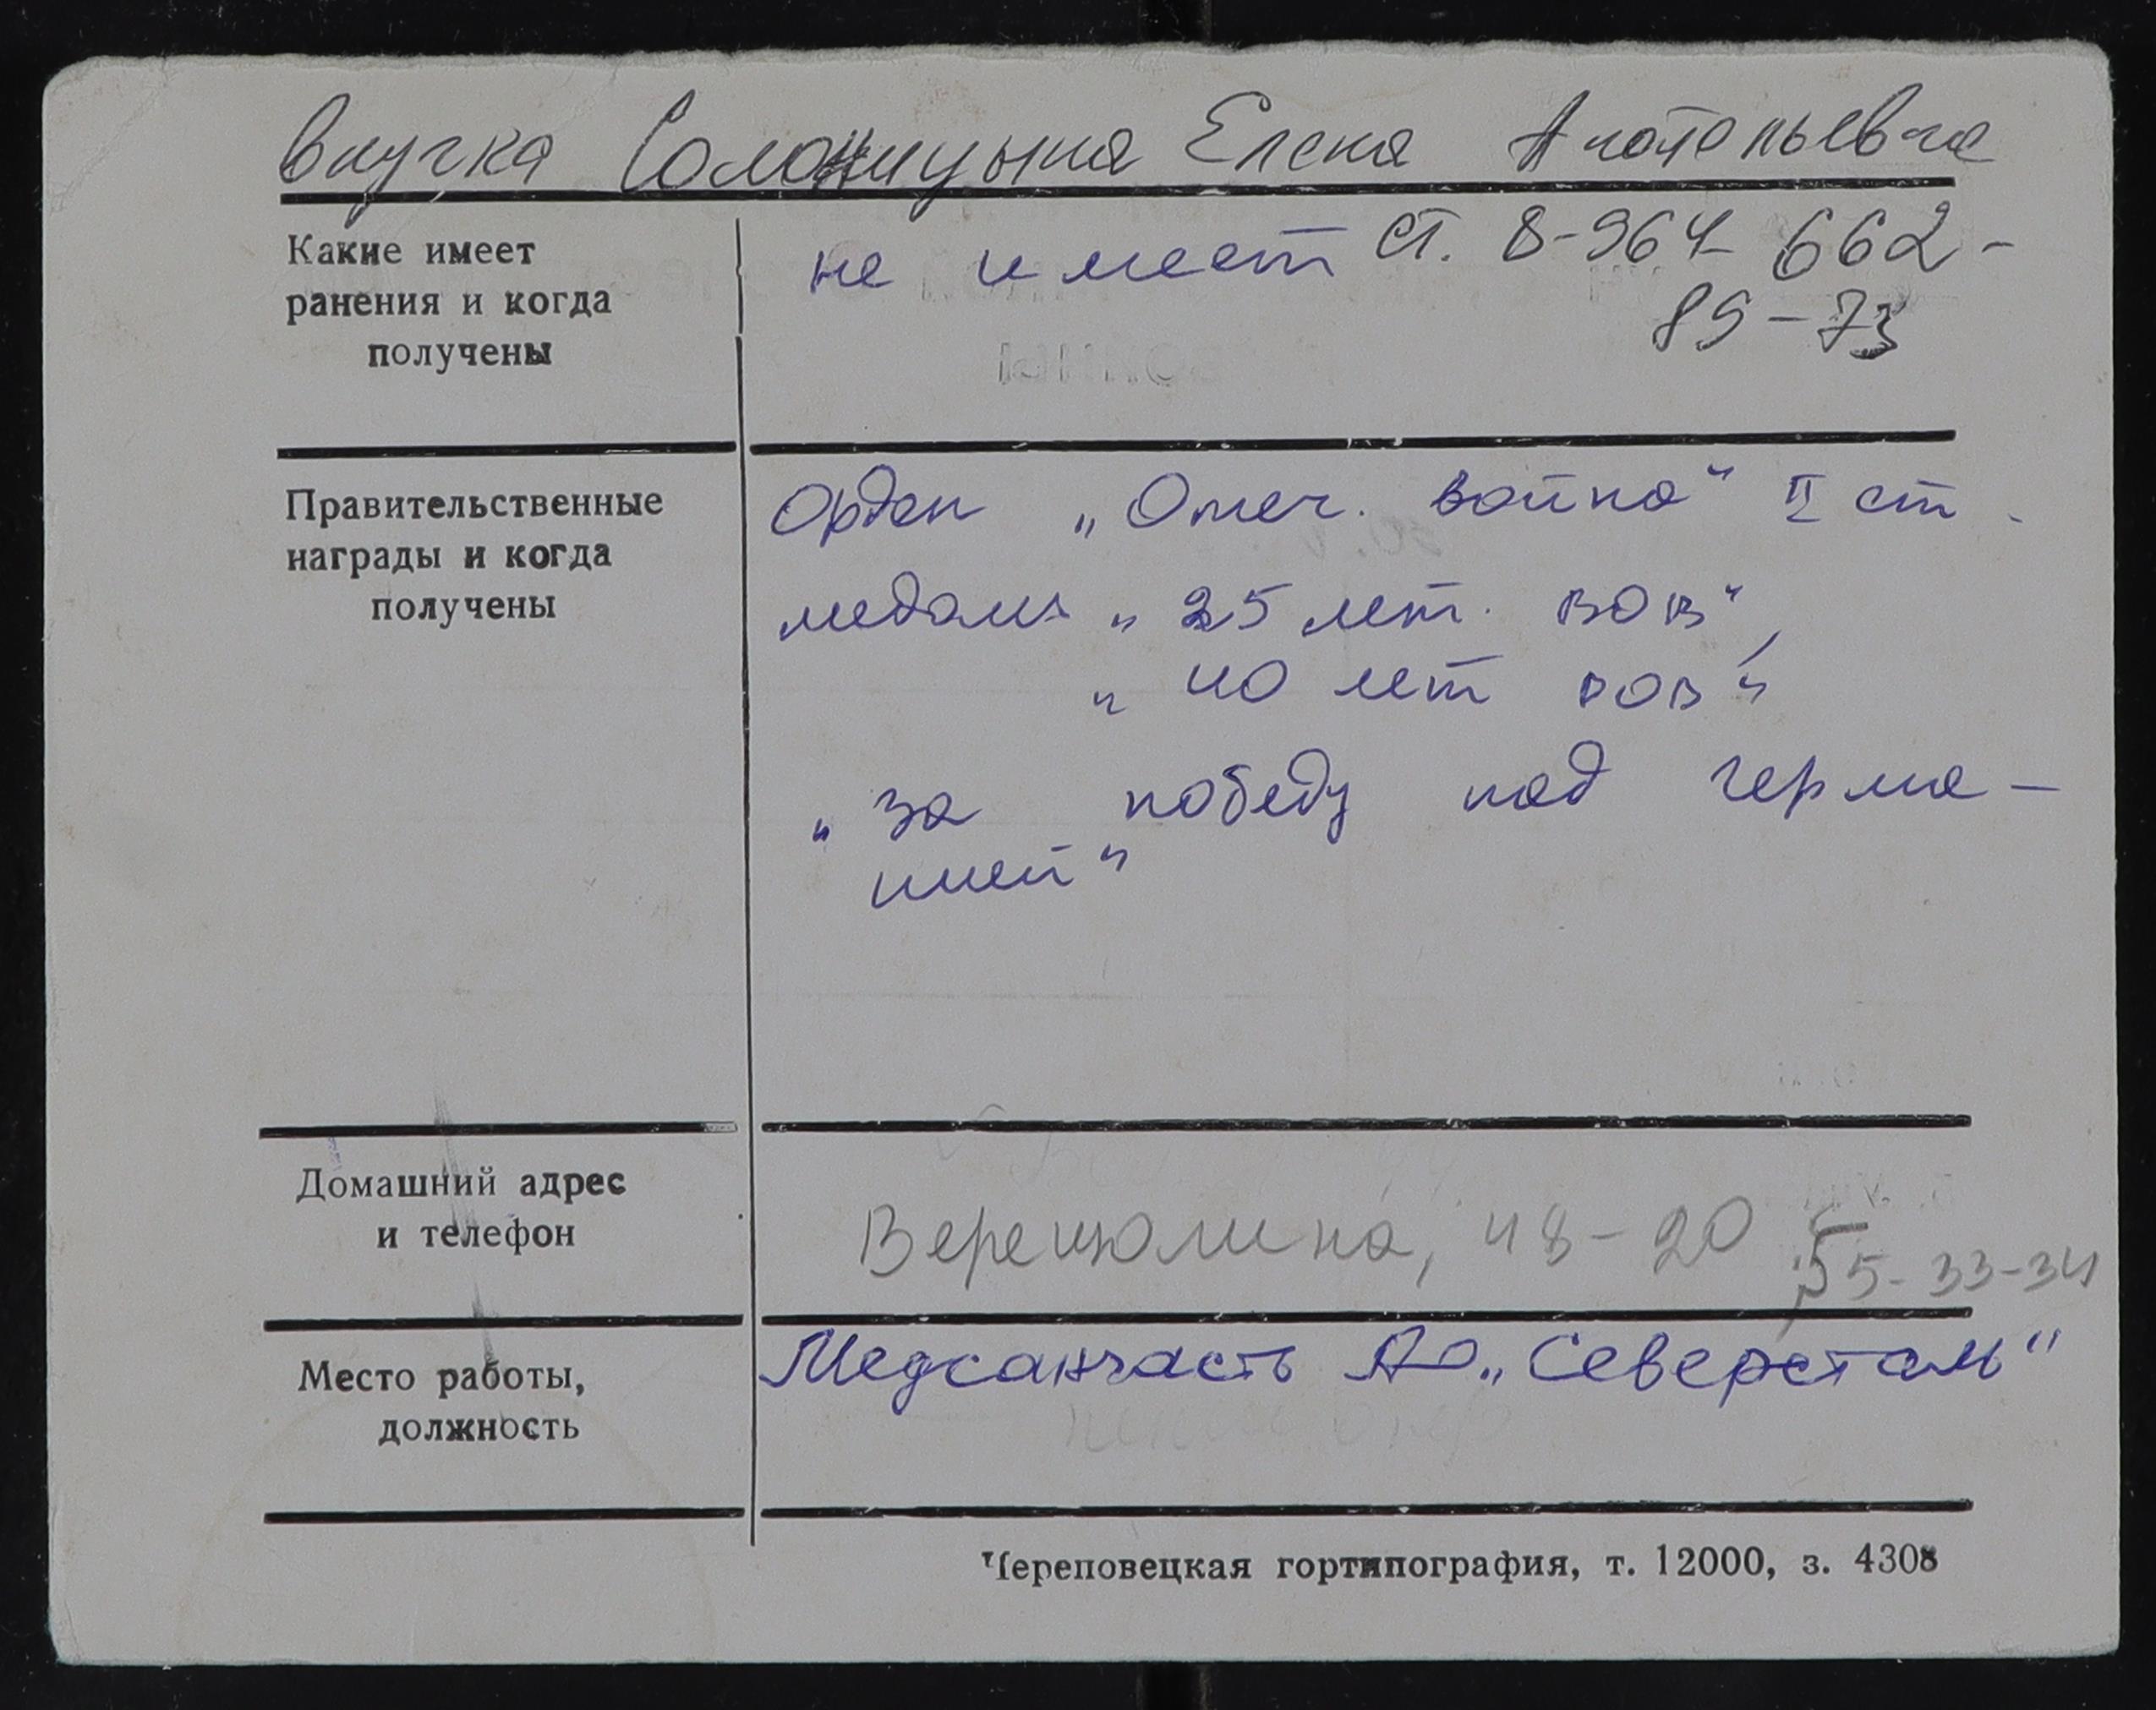 внучка Солоницына Елена Анатольевна
Какие имеет
ранения и когда
получены
не имеет ст. 8-964 662-
89-73
Правительственные
награды и когда
получены
Орден „Отеч. война“ II ст.
медали „25 лет. ВОВ“,
„40 лет ВОВ“
„за победу над герма-
нией“
Домашний адрес
и телефон
Верещагина, 48-20
55-33-34
Место работы,
должность
Медсанчасть АО „Северсталь“
Череповецкая гортипография, т. 12000, з. 4308